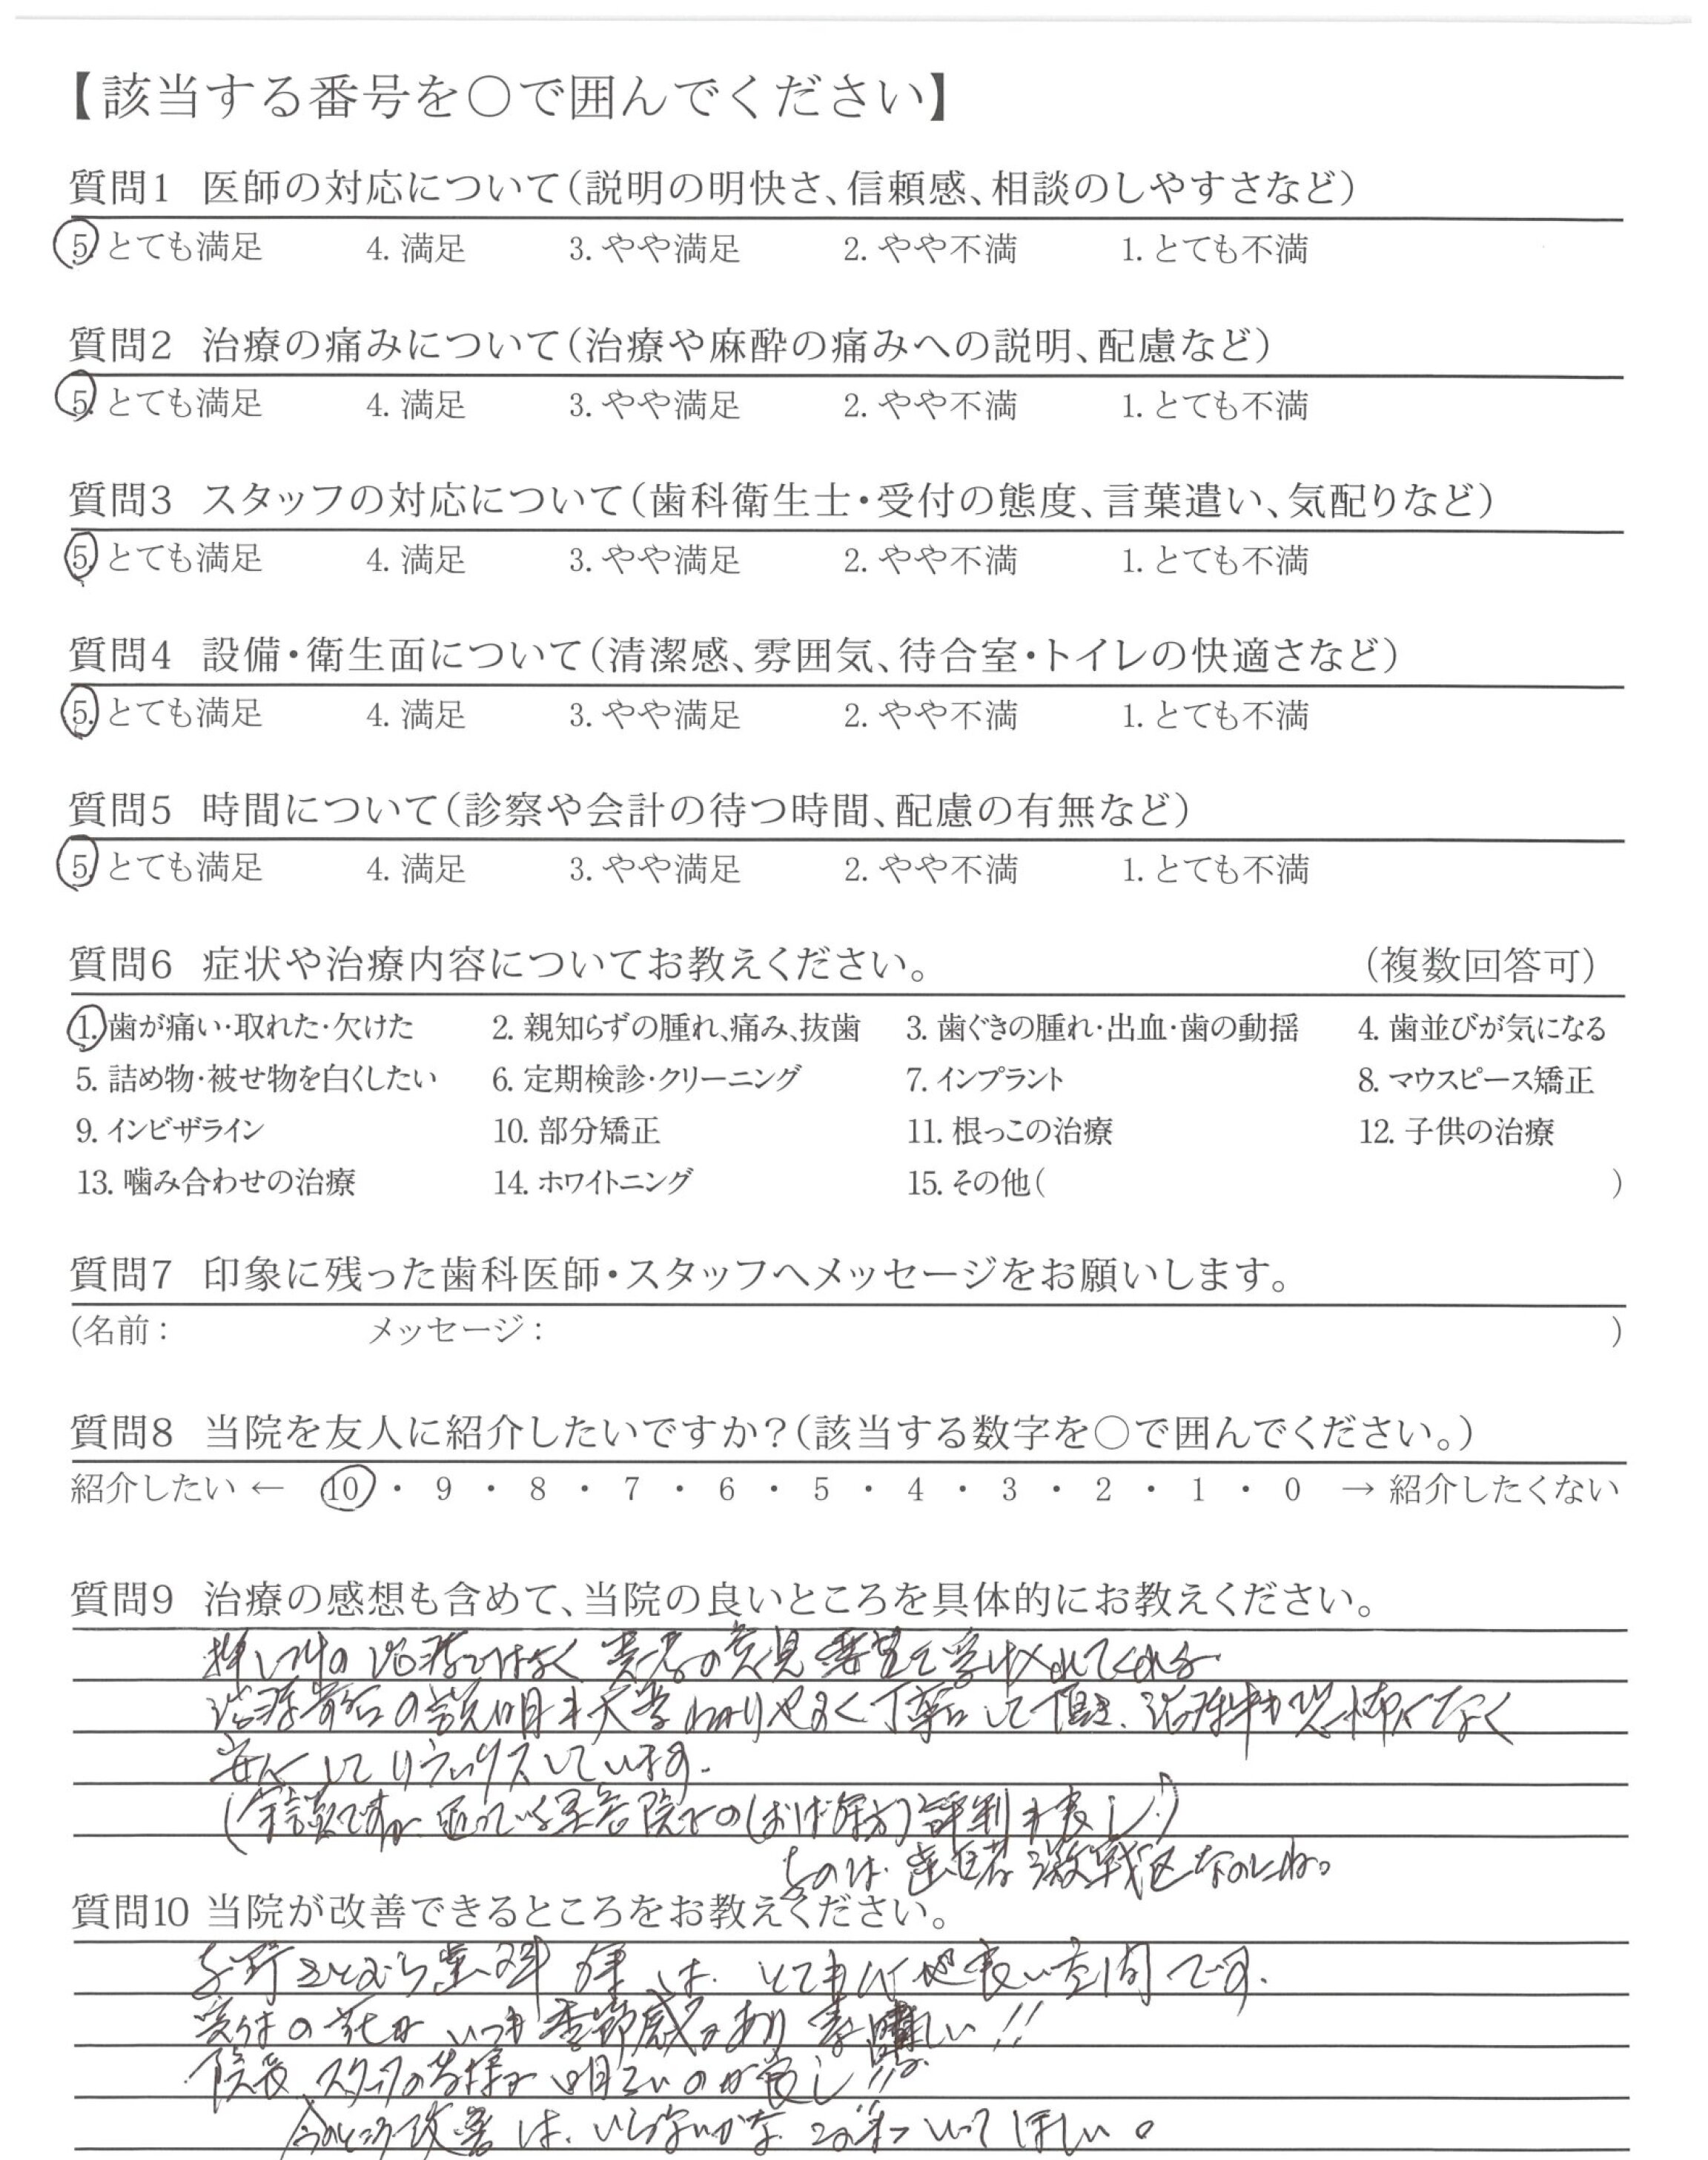 【該当する番号を○で囲んでください】
質問1 医師の対応について(説明の明快さ、信頼感、相談のしやすさなど)
5. とても満足 4. 満足 3. やや満足 2. やや不満 1. とても不満
質問2 治療の痛みについて(治療や麻酔の痛みへの説明、配慮など)
5. とても満足 4. 満足 3. やや満足 2. やや不満 1. とても不満
質問3 スタッフの対応について(歯科衛生士・受付の態度、言葉遣い、気配りなど)
5. とても満足 4. 満足 3. やや満足 2. やや不満 1. とても不満
質問4 設備・衛生面について(清潔感、雰囲気、待合室・トイレの快適さなど)
5. とても満足 4. 満足 3. やや満足 2. やや不満 1. とても不満
質問5 時間について(診察や会計の待つ時間、配慮の有無など)
5. とても満足 4. 満足 3. やや満足 2. やや不満 1. とても不満
質問6 症状や治療内容についてお教えください。 (複数回答可)
1. 歯が痛い・取れた・欠けた 2. 親知らずの腫れ、痛み、抜歯 3. 歯ぐきの腫れ・出血・歯の動揺 4. 歯並びが気になる
5. 詰め物・被せ物を白くしたい 6. 定期検診・クリーニング 7. インプラント 8. マウスピース矯正
9. インビザライン 10. 部分矯正 11. 根っこの治療 12. 子供の治療
13. 噛み合わせの治療 14. ホワイトニング 15. その他( )
質問7 印象に残った歯科医師・スタッフへメッセージをお願いします。
(名前: メッセージ: )
質問8 当院を友人に紹介したいですか?(該当する数字を○で囲んでください。)
紹介したい ← 10 ・ 9 ・ 8 ・ 7 ・ 6 ・ 5 ・ 4 ・ 3 ・ 2 ・ 1 ・ 0 → 紹介したくない
質問9 治療の感想も含めて、当院の良いところを具体的にお教えください。
押し付の治療ではなく 患者の意見 要望を受け入れてくれる
治療 の説明も大変わかりやすく丁寧にして頂き、治療中も恐怖なく
安心してリラックスしています。
(余談ですが、通っている美容院での(おば様方)評判も良し♪)
ちのは 歯医者 激戦区なのにね。
質問10 当院が改善できるところをお教えください。
さとむら歯科 様は、とても心地良い空間です。
受付の花が いつも季節感があり 素晴しい!!
院長、スタッフの皆様が 明るいのが良し!!
今のところ改善は、いらないかな いってほしい。